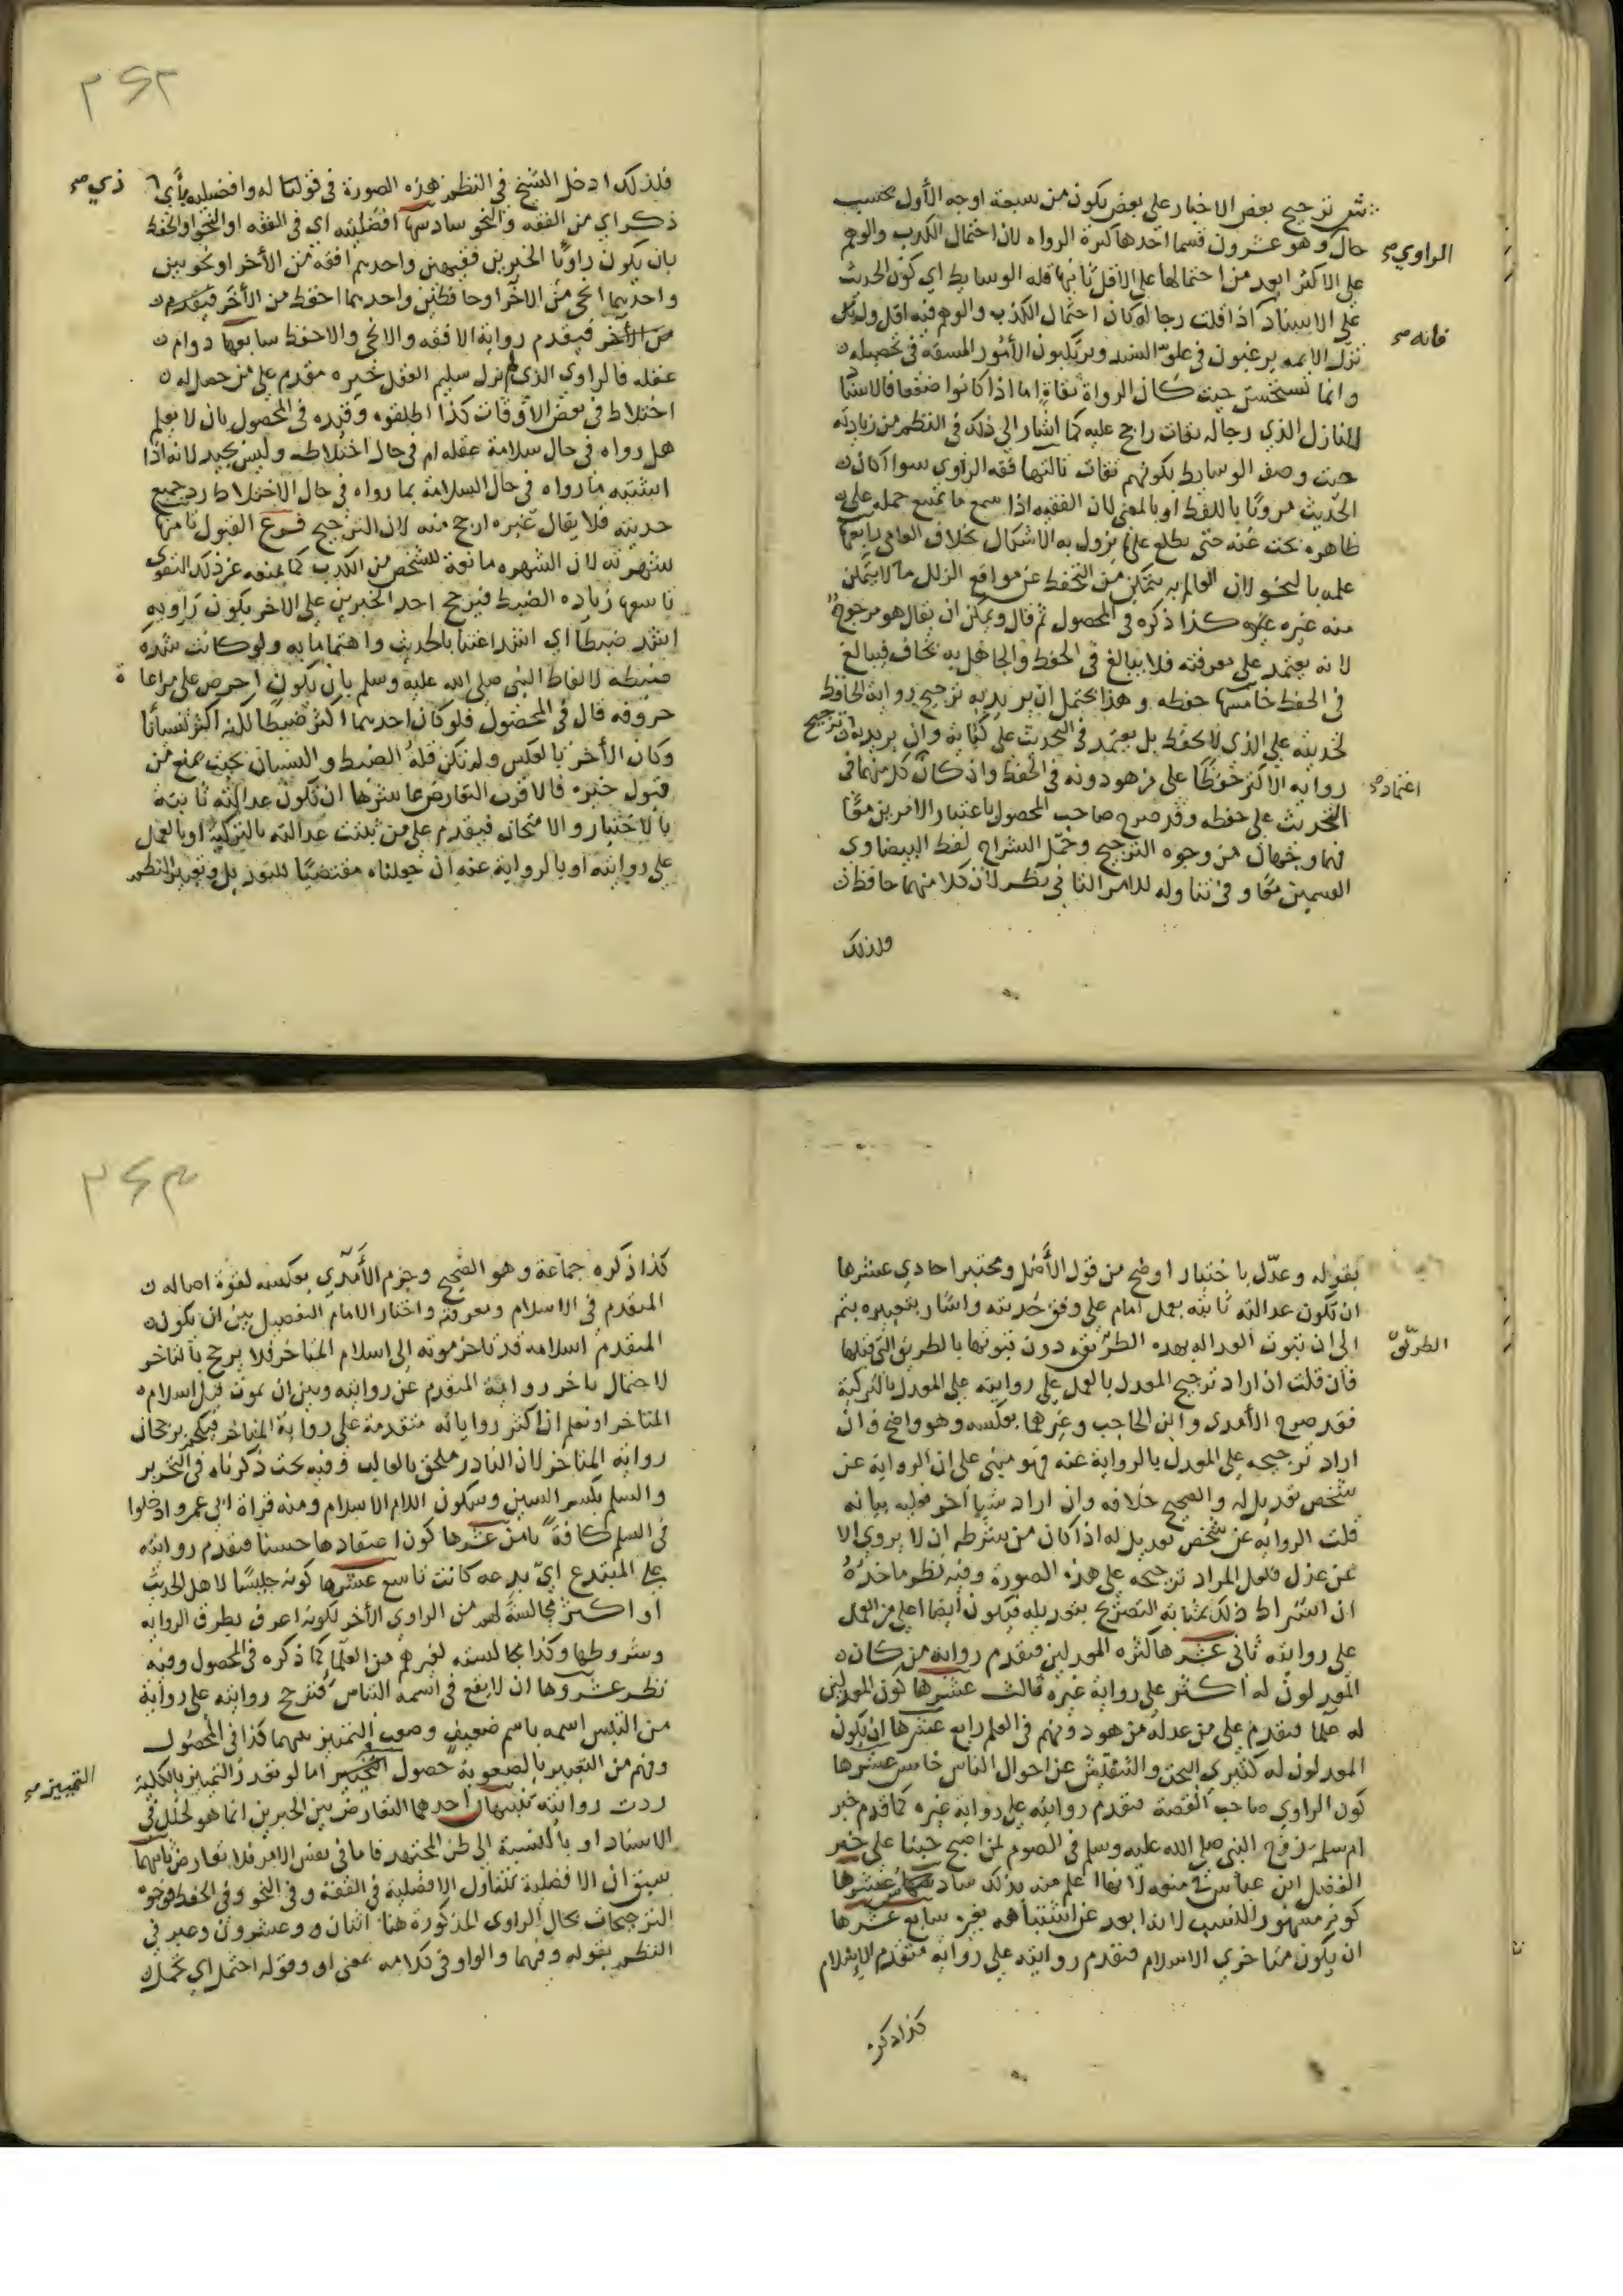 ش ترجيح بعض الاخبار علي بعض يكون من سبعة اوجه الأول بحسب
حال وهو عشرون قسما احدها كثرة الرواه لان احتمال الكذب والوهم
الراوي صح
علي الاكثر ابعد من احتمالها علي الاقل ثانيها قله الوسايط اي كون الحديث
علي الاسناد اذا قلت رجاله كان احتمال الكذب والوهم فيه اقل ولم
فانه صح
تزل الايمه يرغبون في علو السند ويرتكبون الأمور المسقه في تحصيله
وانما تستحسن حيث كان الرواة ثقاة اما اذا كانوا ضعفا فالاسناد
النازل الذي رجاله ثقات راجح عليه كما اشار الي ذلك في النظم من زيادته
حيث وصف الوسايط بكونهم ثقات ثالثها فقه الراوي سوا كان
الحديث مرويًا باللفظ او بالمعني لان الفقيه اذا سمع ما يمتنع حمله علي
ظاهره بحث عنه حتي يطلع علي ما يزول به الاشكال بخلاف العامي رابعها
علمه بالنحو لان العالم به يتمكن من التحفظ عن مواقع الزلل ما لا يتمكن
منه غيره كذا ذكره في المحصول ثم قال ويمكن ان يقال هو مرجوح
لانه يعتمد علي معرفته فلا يبالغ في الحفظ والجاهل به يخاف فيبالغ
في الحفظ خامسها حفظه وهذا يحتمل ان يريد به ترجيح رواية الحافظ
لحديثه علي الذي لا يحفظ بل يعتمد في الحديث علي كتابة وان يريد به ترجيح
روايه الاكثر حفظًا علي من هو دونه في الحفظ واذ كان كل منهما في
اعتماد صح
التحديث علي حفظه وقد صرح صاحب المحصول باعتبار الامرين معًا
فهما وجهان من وجوه الترجيح وحمل الشراح لفظ البيضاوي
القسمين معًا وفي تناوله للامر الثاني نظر لان كلا منهما حافظ
فلذلك
٣٤٢
فلذلك ادخل الشيخ في النظم هذه الصورة في قولنا له وافضليه بأي
ذي صح
ذكر اي من الفقه والنحو سادسها افضليته اي في الفقه او النحو او الحفظ
بان يكون راويًا الخبرين فقيهين واحدهم افقه من الأخر او نحويين
واحدهما انحي من الاخر او حافظين واحدهما احفظ من الأخر فيقدم
من الأخر فيقدم رواية الافقه والانحي والاحفظ سابعها دوام
عقله فالراوي الذي لم يزل سليم العقل خبره مقدم علي من حصل له
اختلاط في بعض الاوقات كذا اطلقوه وقيده في المحصول بان لا يعلم
هل رواه في حال سلامة عقله ام في حال اختلاطه وليس بجيد لانه اذا
اشتبه ما رواه في حال السلامة بما رواه في حال الاختلاط رد جميع
حديثه فلا يقال غيره ارجح منه لان الترجيح فرع القبول ثامنها
شهرته لان الشهره مانعة للشخص من الكذب كما يمنعه عن ذلك التقوي
تاسعها زياده الضبط فيرجح احد الخبرين علي الاخر بكون راويه
اشد ضبطا اي اشد اعتنا بالحديث واهتماما به ولو كانت شدة
ضبطه لالفاظ النبي صلي الله عليه وسلم بان يكون احرص علي مراعاة
حروفه قال في المحصول فلو كان احدهما اكثر ضبطًا لكنه اكثر نسيانًا
وكان الأخر بالعكس ولم تكن قلة الضبط والنسيان بحيث يمنع من
قبول خبره فالاقرب التعارض عاشرها ان تكون عدالته ثابتة
بالاختبار والامتحان فيقدم علي من ثبتت عدالته بالتزكية او بالعمل
علي روايته او بالرواية عنه ان جعلناه مقتضيًا للتعديل وتعبير النظم
بقوله وعدّل باختبار اوضح من قول الأصل ومختبرا حادي عشرها
ان تكون عدالته ثابته بعمل امام علي وفق حديثه واشار بتعبيره بثم
الي ان ثبوت العداله بهده الطريقه دون ثبوتها بالطريق التي قبلها
الطريق
فان قلت ان اراد ترجيح المعدل بالعمل علي روايته علي المعدل بالتزكية
فقد صرح الأمدي وابن الحاجب وغيرهما بعكسه وهو واضح وان
اراد ترجيحه علي المعدل بالرواية عنه فهو مبني علي ان الرواية عن
شخص تعديل له والصحيح خلافه وان اراد شيا آخر فعليه بيانه
قلت الروايه عن شخص تعديل له اذا كان من شرطه ان لا يروي الا
عن عدل فلعل المراد ترجيحه علي هذه الصورة وفيه نظر وماخذه
ان اشتراط ذلك بمثابه التصريح بتعديله فيكون أيضا اعلي من العمل
علي روايته ثاني عشرها كثره المعدلين فيقدم رواية من كان
المعدلون له اكثر علي رواية غيره ثالث عشرها كون المعدلين
له علما فيقدم علي من عدله من هو دونهم في العلم رابع عشرها ان يكون
المعدلون له كثيري البحث والتفتيش عن احوال الناس خامس عشرها
كون الراوي صاحب القصة فيقدم روايته علي رواية غيره كما قدم خبر
ام سلمة زوج النبي صلي الله عليه وسلم في الصوم لمن اصبح جنبا علي خبر
الفضل ابن عباس في منعه لانها اعلم منه بذلك سادس عشرها
كونه مشهور النسب لانه ابعد عن اشتباهه بغيره سابع عشرها
ان يكون متاخري الاسلام فيقدم روايته علي رواية متقدم الاسلام
كذا ذكره
٣٤٣
كذا ذكره جماعة وهو الصحيح وجزم الأمدي بعكسه لقوة اصاله
المتقدم في الاسلام ومعرفته واختار الامام التفصيل بين ان يكون
المتقدم اسلامه قد تاخر موته الي اسلام المتاخر فلا يرجح بالتاخر
لاحتمال تاخر رواية المتقدم عن روايته وبين ان يموت قبل اسلام
المتاخر او نعلم ان اكثر رواياته متقدمة علي رواية المتاخر فيحكم برجحان
روايه المتاخر لان النادر ملحق بالغالب وفيه بحث ذكرناه في التحرير
والسلم بكسر السين وسكون اللام الاسلام ومنه قراة ابي عمرو ادخلوا
في السلم كافة ثامن عشرها كون اعتقادها حسنا فيقدم روايته
علي المبتدع ايّ بدعه كانت تاسع عشرها كونه جليسًا لاهل الحديث
او اكثر مجالسة لهم من الراوي الأخر لكونه اعرف بطرق الروايه
وشروطها وكذا مجالسته لغيرهم من العلما كما ذكره في المحصول وفيه
نظر عشروها ان لا يقع في اسمه التباس فترجح روايته علي رواية
من التبس اسمه باسم ضعيف وصعب التمييز بينهما كذا في المحصول
وفهم من التعبير بالصعوبة حصول اما لو تعذر التمييز بالكلية
التمييز صح
ردت روايته تنبيهان احدهما التعارض بين الخبرين انما هو لخلل في
الاسناد او بالنسبة الي ظن المجتهد فاما في نفس الامر فلا تعارض ثانيهما
سبق ان الافضلية تتناول الافضلية في الفقه وفي النحو وفي الحفظ فوجوه
الترجيحات بحال الراوي المذكورة هنا اثنان وعشرون وعبر في
النظم بقوله وفهما والواو في كلامه بمعني او وقوله احتمل اي تحمل